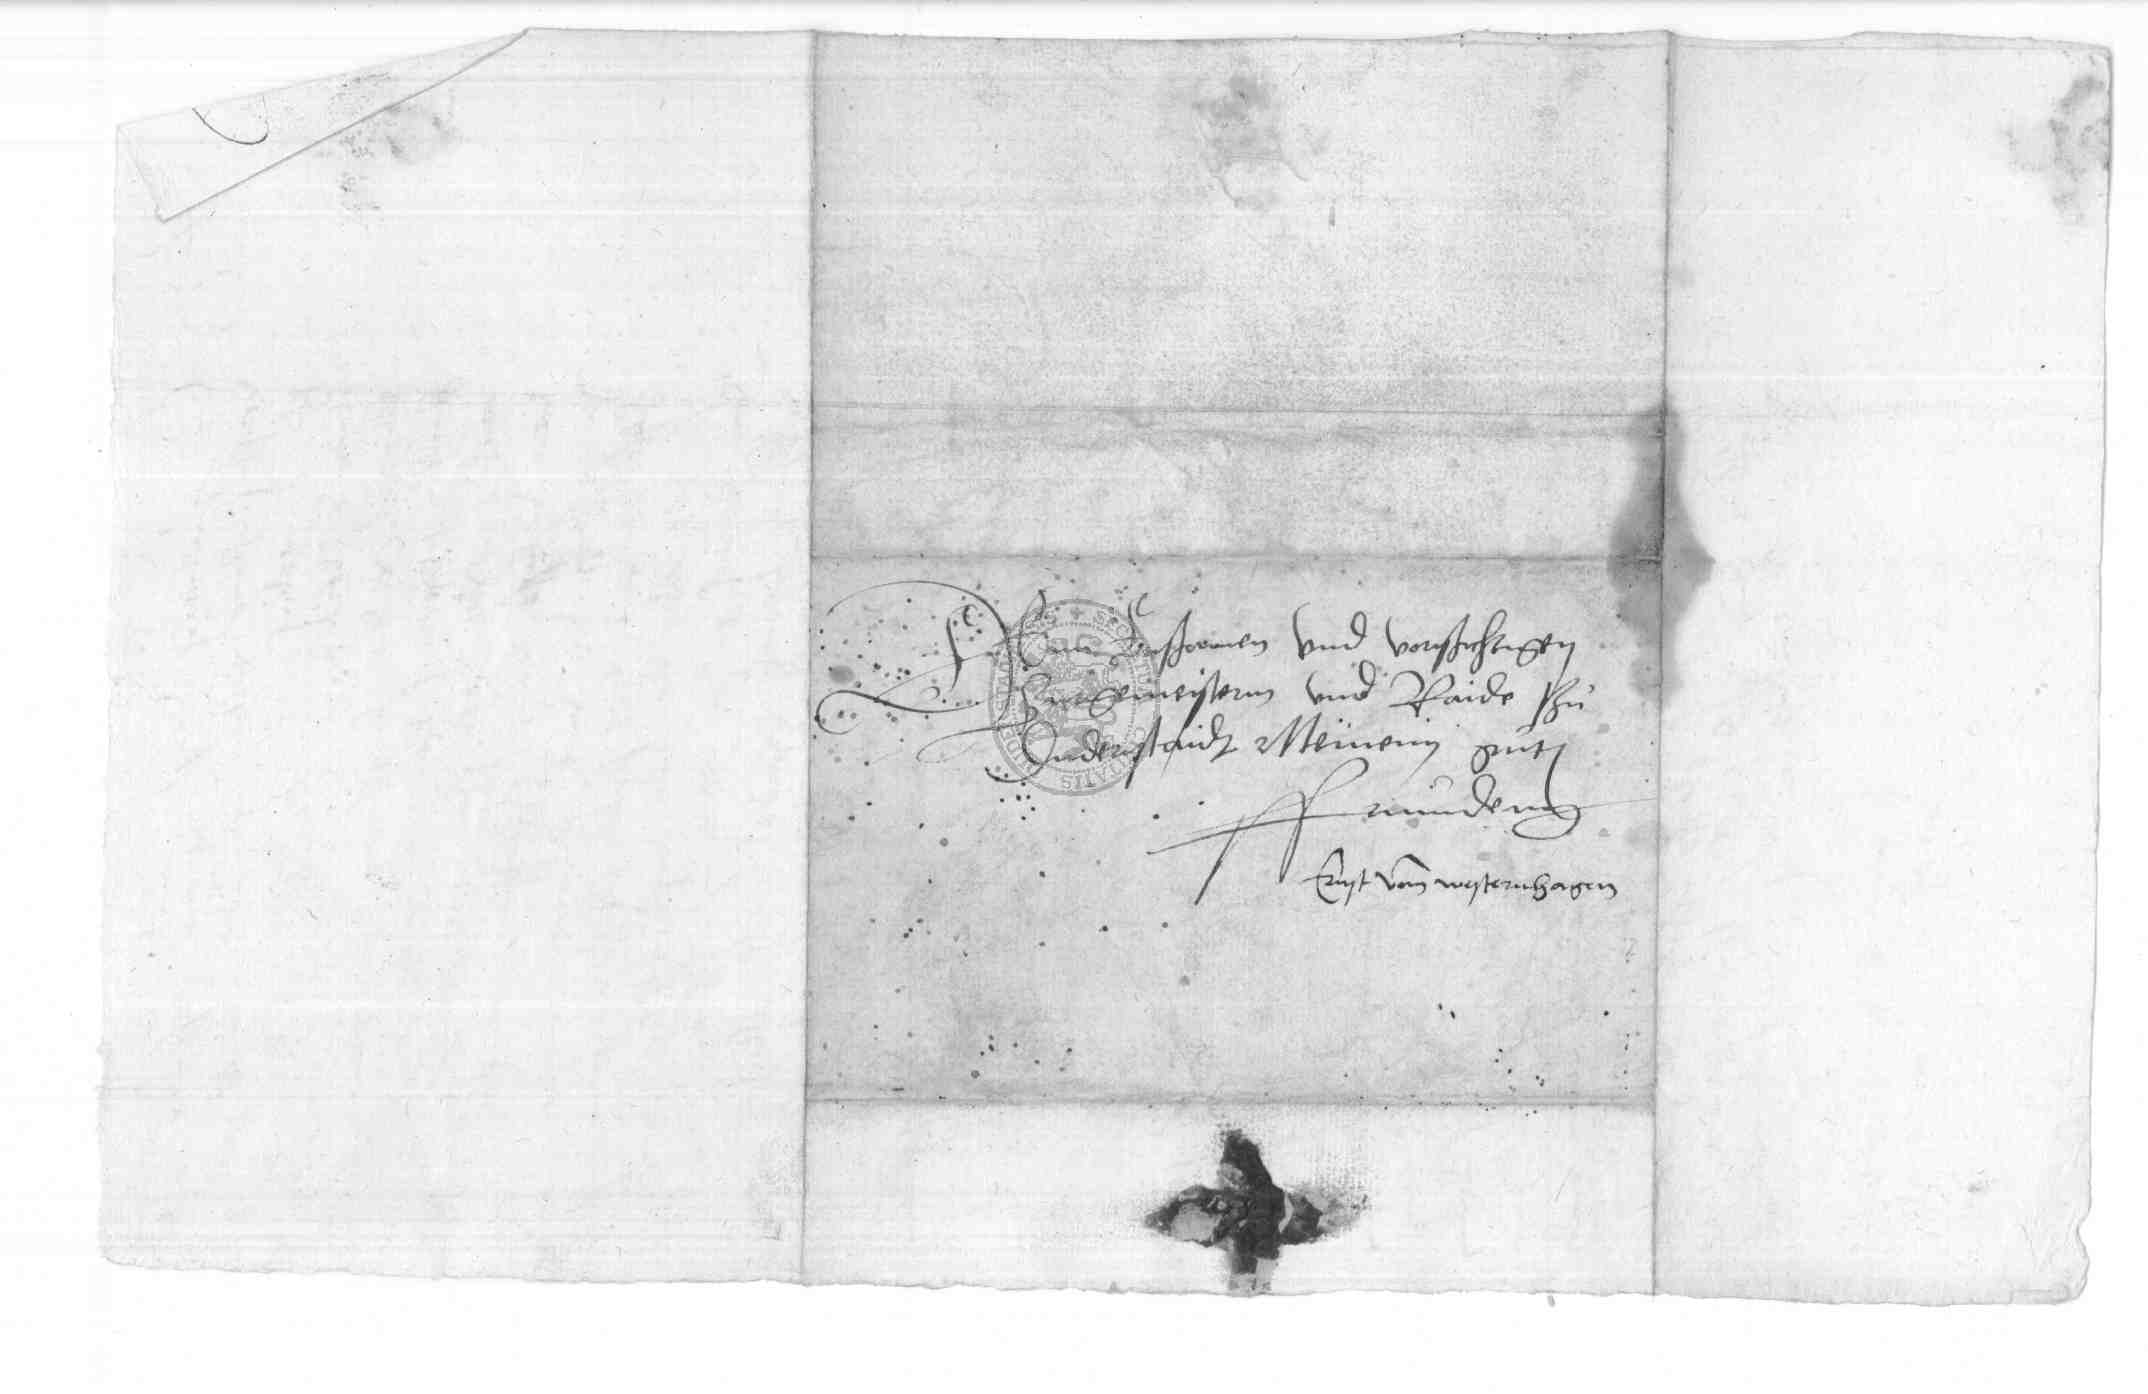 Den Ersamen vnd vorsichtigen
Burgemeistern vnd Raide zu
Duderstaidt Meinenn guten
Freundenn
Ernst vonn westernhagen